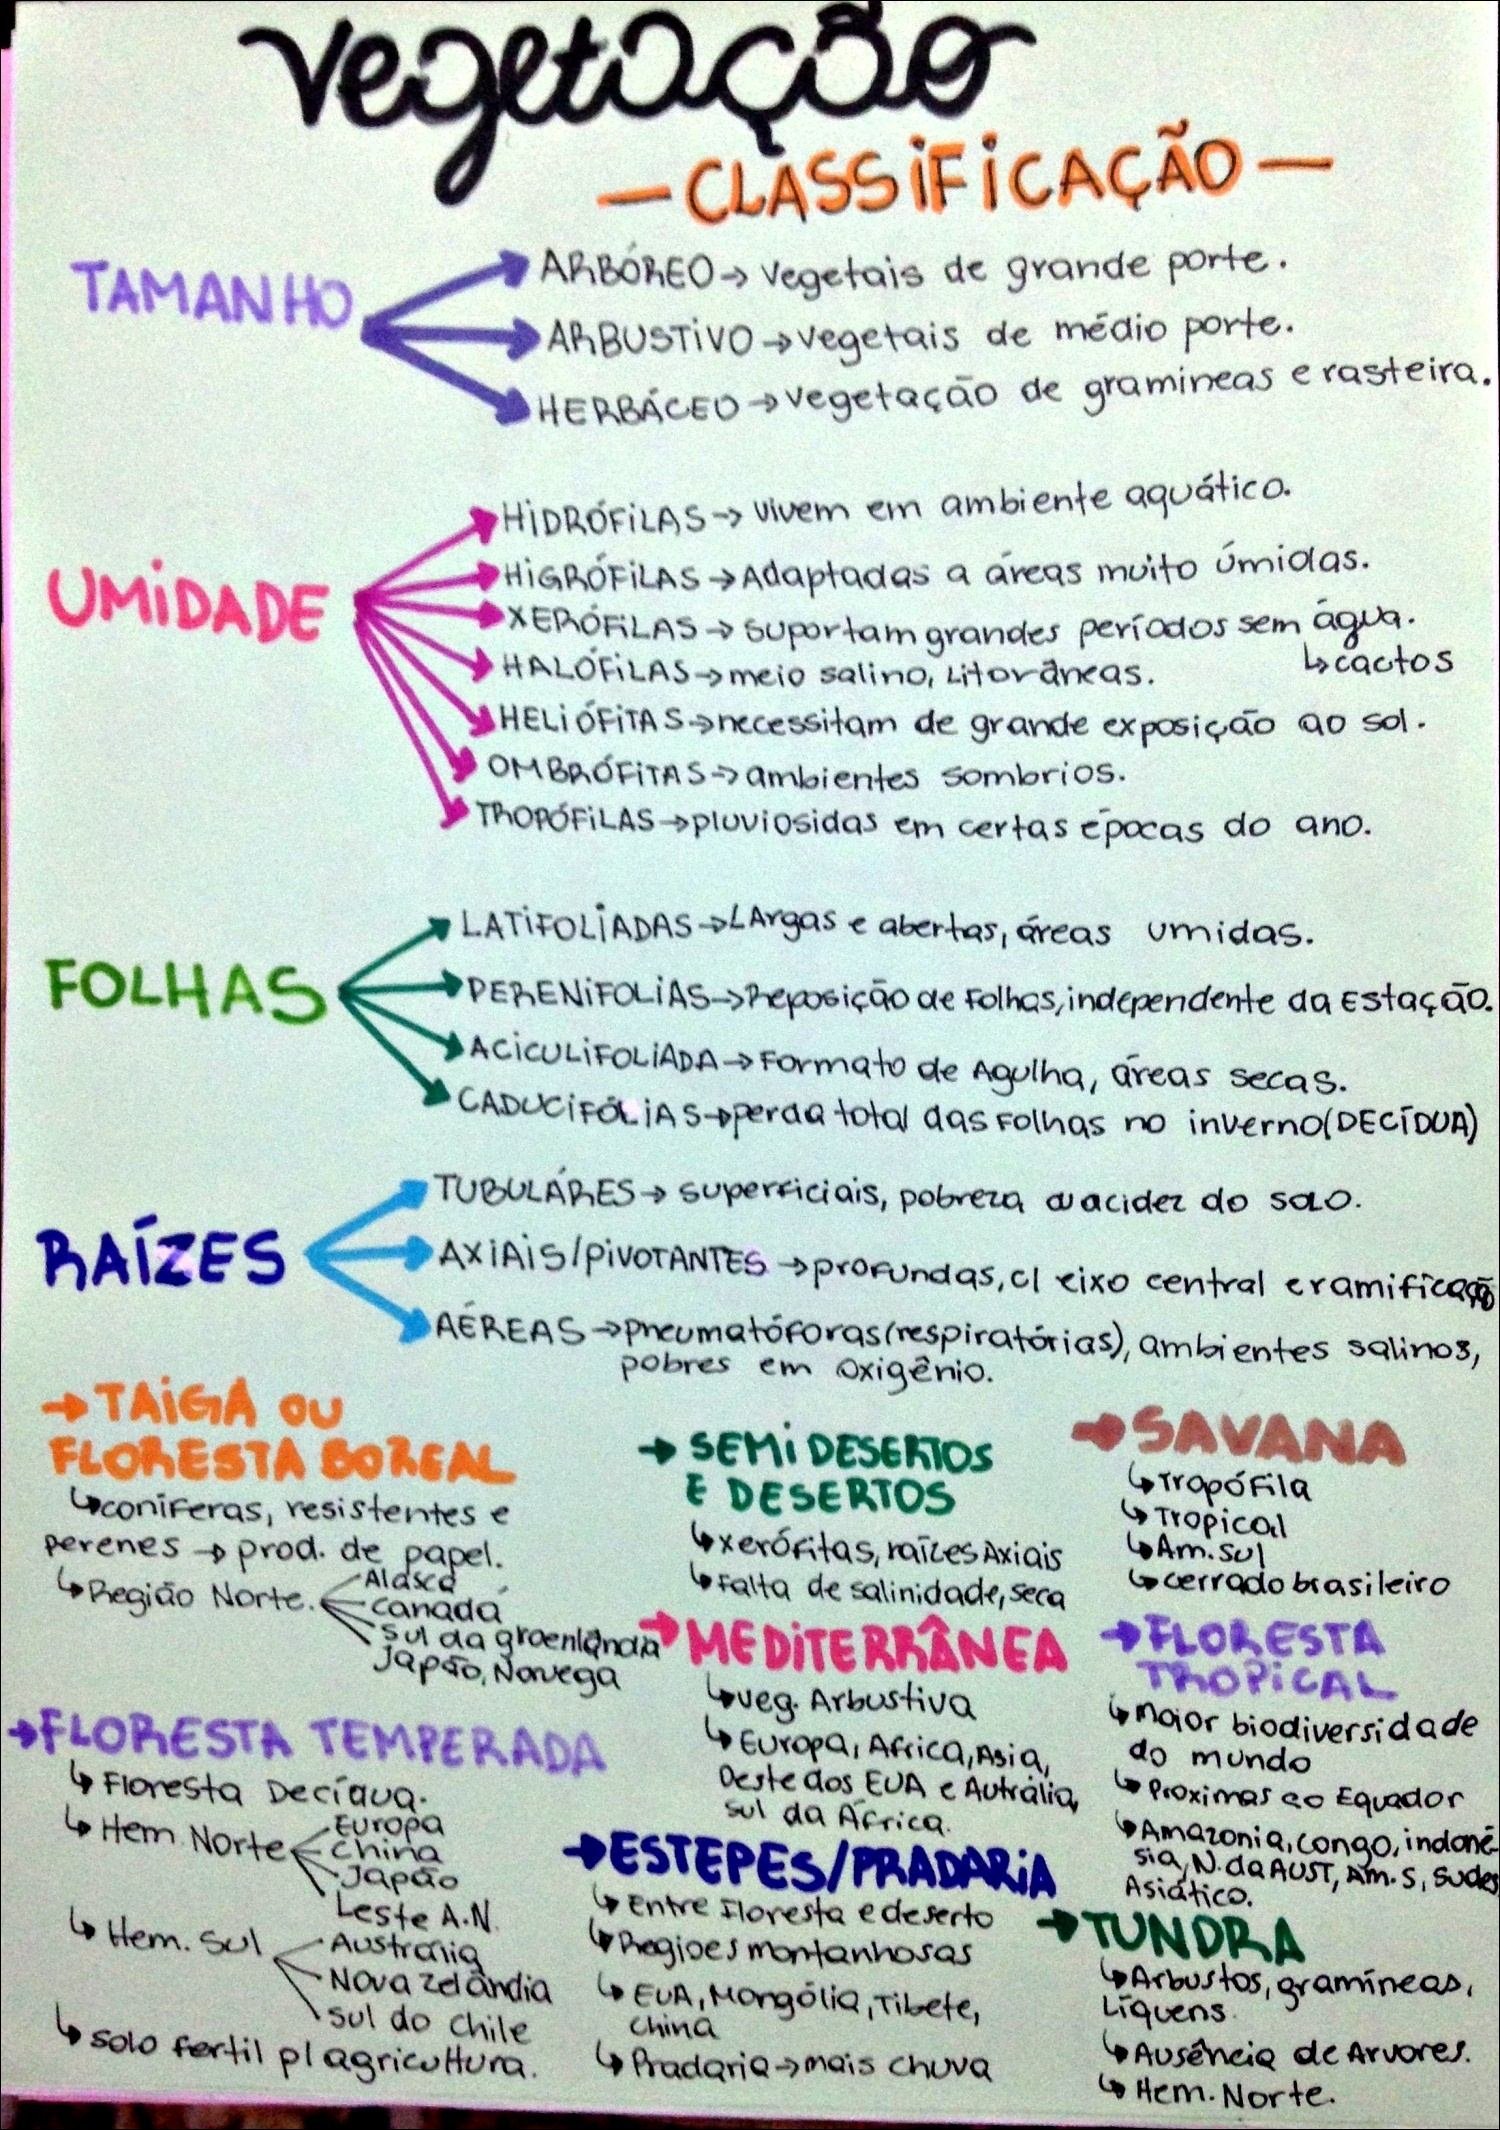 Vegetação
— CLASSIFICAÇÃO —
TAMANHO
ARBÓREO → Vegetais de grande porte.
ARBUSTIVO → vegetais de médio porte.
HERBÁCEO → vegetação de gramineas e rasteira.
UMIDADE
HIDRÓFILAS → vivem em ambiente aquático.
HIGRÓFILAS → Adaptadas a áreas muito úmidas.
XERÓFILAS → suportam grandes períodos sem água.
↳ cactos
HALÓFILAS → meio salino, Litorâneas.
HELIÓFITAS → necessitam de grande exposição ao sol.
OMBRÓFITAS → ambientes sombrios.
TROPÓFILAS → pluviosidas em certas épocas do ano.
FOLHAS
LATIFOLIADAS → LArgas e abertas, áreas umidas.
PERENIFOLIAS → Reposição de Folhas, independente da Estação.
ACICULIFOLIADA → Formato de Agulha, áreas secas.
CADUCIFÓLIAS → perda total das Folhas no inverno (DECÍDUA)
RAÍZES
TUBULÁRES → superficiais, pobreza ou acidez do solo.
AXIAIS/PIVOTANTES → profundas, c/ eixo central e ramificação
AÉREAS → pneumatóforas (respiratórias), ambientes salinos,
pobres em oxigênio.
→ TAIGA OU
FLORESTA BOREAL
↳ coníferas, resistentes e
perenes → prod. de papel.
↳ Região Norte.
Alasca
canadá
sul da groenlândia
Japão, Noruega
→ FLORESTA TEMPERADA
↳ Floresta Decídua.
↳ Hem. Norte
Europa
China
Japão
Leste A.N.
↳ Hem. Sul
Austrália
Nova zelândia
sul do chile
↳ solo fertil p/ agricultura.
→ SEMI DESERTOS
E DESERTOS
↳ xerófitas, raízes Axiais
↳ Falta de salinidade, seca
→ MEDITERRÂNEA
↳ veg. Arbustiva
↳ Europa, Africa, Asia,
Oeste dos EUA e Autrália,
sul da África.
→ ESTEPES/PRADARIA
↳ Entre Floresta e deserto
↳ Regioes montanhosas
↳ EUA, Mongólia, Tibete,
china
↳ Pradaria → mais chuva
→ SAVANA
↳ Tropófila
↳ Tropical
↳ Am. sul
↳ cerrado brasileiro
→ FLORESTA
TROPICAL
↳ maior biodiversidade
do mundo
↳ Proximas ao Equador
↳ Amazonia, congo, indoné-
sia, N. da AUST, Am. S, sudes
Asiático.
→ TUNDRA
↳ Arbustos, gramíneas,
Líquens.
↳ Ausência de Arvores.
↳ Hem. Norte.